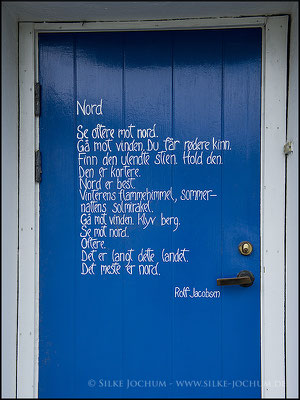 Nord
Se oftere mot nord.
Gå mot vinden, Du får rødere kinn.
Finn den ulendte stien. Hold den.
Den er kortere.
Nord er best.
Vinterens flammehimmel, sommer-
nattens solmirakel.
Gå mot vinden. Klyv berg.
Se mot nord.
Oftere.
Det er langt dette landet.
Det meste er nord.
Rolf Jacobsen
© SILKE JOCHUM - WWW.SILKE-JOCHUM.DE